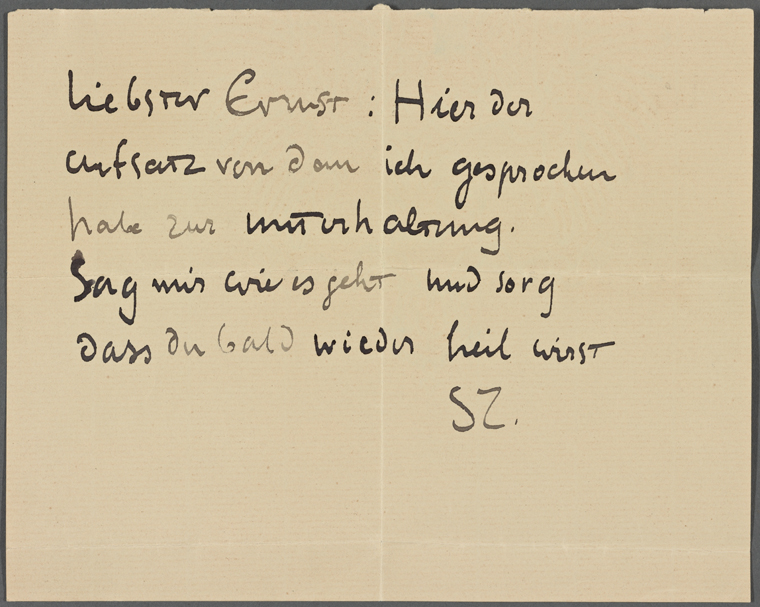 liebster Ernst : Hier der
aufsatz von dem ich gesprochen
habe zur unterhaltung.
Sag mir wie es geht und sorg
dass du bald wieder heil wirst
SZ.